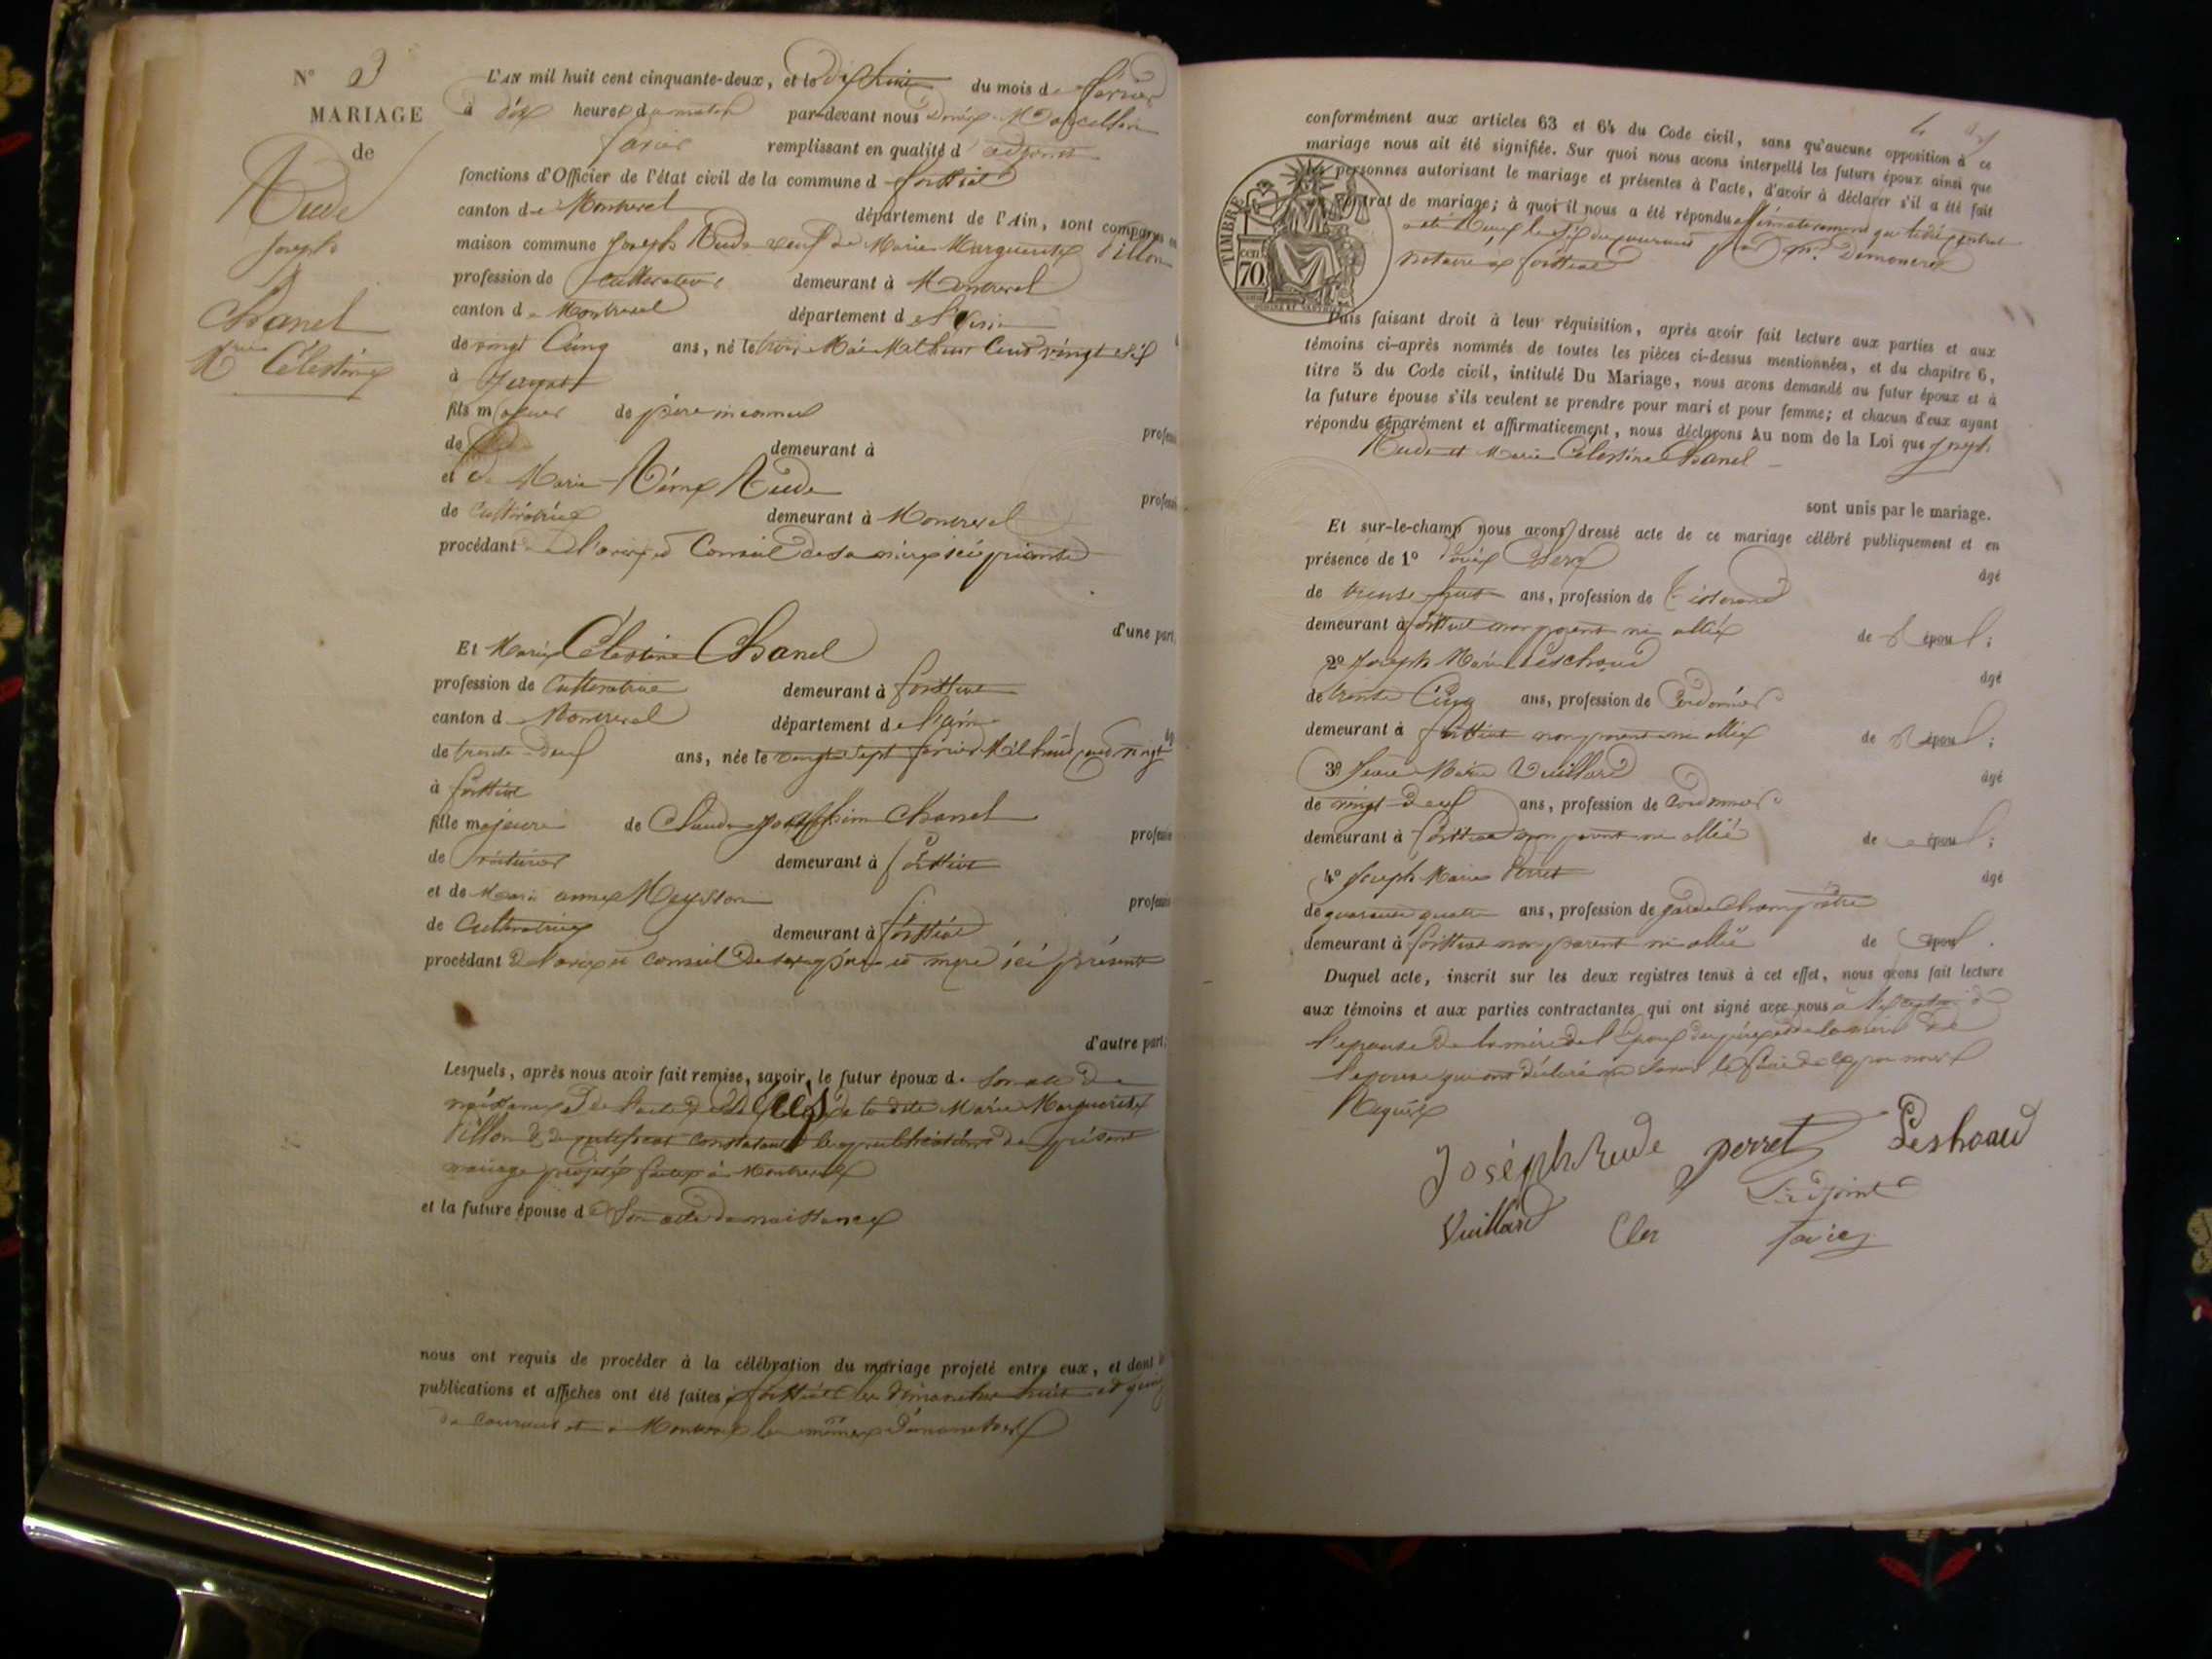 N° 3
MARIAGE
de
Rude
Joseph
Chanel
Célestine
L'AN mil huit cent cinquante-deux, et le dix huit du mois de février
à dix heures du matin par-devant nous
favier remplissant en qualité d'adjoint
fonctions d'Officier de l'état civil de la commune d
canton de Montrevel département de l'Ain, sont comparus
maison commune Joseph Rude veuf de Marie Marguerite Pillon
profession de cultivateur demeurant à Montrevel
canton de Montrevel département de l'ain
de vingt Cinq ans, né le trois Mai Mil huit Cent vingt six
à Jayat
fils majeur de père inconnu
profess
de demeurant à
et de Marie Rude
profess
de Cultivatrice demeurant à Montrevel
procédant de l'avis et Conseil de sa mère ici présente
d'une part.
Et Marie Célestine Chanel
profession de Cultivatrice demeurant à
canton de Montrevel département de l'ain
de trente deux ans, née le vingt sept février Mil huit cent vingt
à
fille majeure de Claude Chanel
profession
de demeurant à
et de Marie anne
profession
de Cultivatrice demeurant à
procédant de l'avis et conseil de ses père et mère ici présents
d'autre part;
Lesquels, après nous avoir fait remise, savoir, le futur époux de son acte de
naissance de l'acte de décès de la dite Marie Marguerite
Pillon & du certificat constatant les publications du présent
mariage projeté faites à Montrevel
et la future épouse de son acte de naissance
nous ont requis de procéder à la célébration du mariage projeté entre eux, et dont
publications et affiches ont été faites les dimanches huit et quinze
du courant et à Montrevel les mêmes dimanches
4
conformément aux articles 63 et 64 du Code civil, sans qu'aucune opposition à ce
mariage nous ait été signifiée. Sur quoi nous avons interpellé les futurs époux ainsi que
personnes autorisant le mariage et présentes à l'acte, d'avoir à déclarer s'il a été fait
contrat de mariage; à quoi il nous a été répondu affirmativement que le dit contrat
a été reçu le six du courant par
notaire à
TIMBRE
cen
70
Puis faisant droit à leur réquisition, après avoir fait lecture aux parties et aux
témoins ci-après nommés de toutes les pièces ci-dessus mentionnées, et du chapitre 6,
titre 5 du Code civil, intitulé Du Mariage, nous avons demandé au futur époux et à
la future épouse s'ils veulent se prendre pour mari et pour femme; et chacun d'eux ayant
répondu séparément et affirmativement, nous déclarons Au nom de la Loi que Joseph
Rude et Marie Célestine Chanel
sont unis par le mariage.
Et sur-le-champ nous avons dressé acte de ce mariage célébré publiquement et en
présence de 1°
âgé
de trente huit ans, profession de tisserand
demeurant à non parent ni allié de l'époux;
2° Joseph Marie
âgé
de trente Cinq ans, profession de Cordonnier
demeurant à non parent ni allié de l'époux;
3° Jean Marie Vuillard
âgé
de vingt deux ans, profession de Cordonnier
demeurant à non parent ni allié de époux;
4° Joseph Marie Perret
âgé
de quarante quatre ans, profession de garde Champêtre
demeurant à non parent ni allié de époux.
Duquel acte, inscrit sur les deux registres tenus à cet effet, nous avons fait lecture
aux témoins et aux parties contractantes qui ont signé avec nous à l'exception de
l'epouse de la mère de l'Epoux du père et de la mère de
l'epouse qui ont déclaré ne savoir le faire de ce par nous
Requis
Joseph Rude perret Peshoud
L'adjoint
Vuillard Cler favier